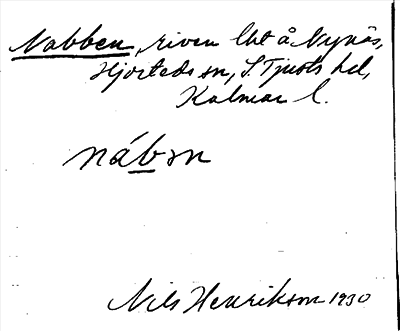 Nabben, riven lht å Nynäs,
Hjorteds sn, S. Tjusts hd,
Kalmar l.
nábsn
Nils Henrikson 1930